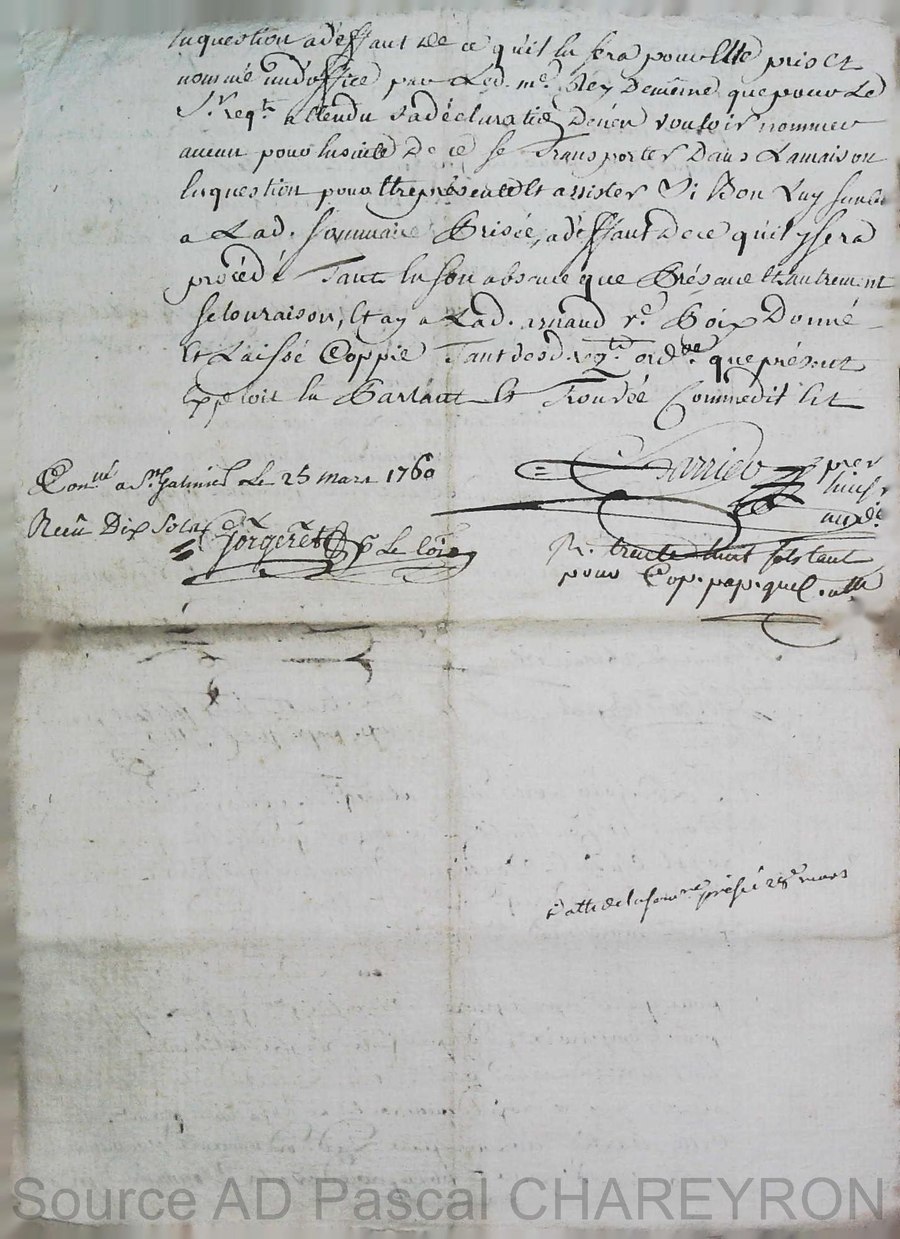 en question a deffaut de ce qu'il en sera pour elle pris et
nommé un d'office par led. me. Rey de même que pour le
Sr. reqt. attendu sa déclaration de n'en vouloir nommer
aucun pour ensuite de ce se transporter dans la maison
en question pour être présente et assister si bon luy semble
a lad. sommaire prisée, a deffaut de ce qu'il y sera
procédé tant en son absence que présence et autrement
se lou raison, et ay a lad. arnaud ve. Boix donné
et laissé coppie tant desd. reqte ordce. que présent
exploit en parlant
Conlé a St. Galmier le 25 mars 1760
Reçu dix sols
Gorgeret p. le
Garnier
pier
huissr
aud.
R. trente huit sols tant
pour cop. pap. que
datte de la somre. prisée 28e mars
Source AD Pascal CHAREYRON